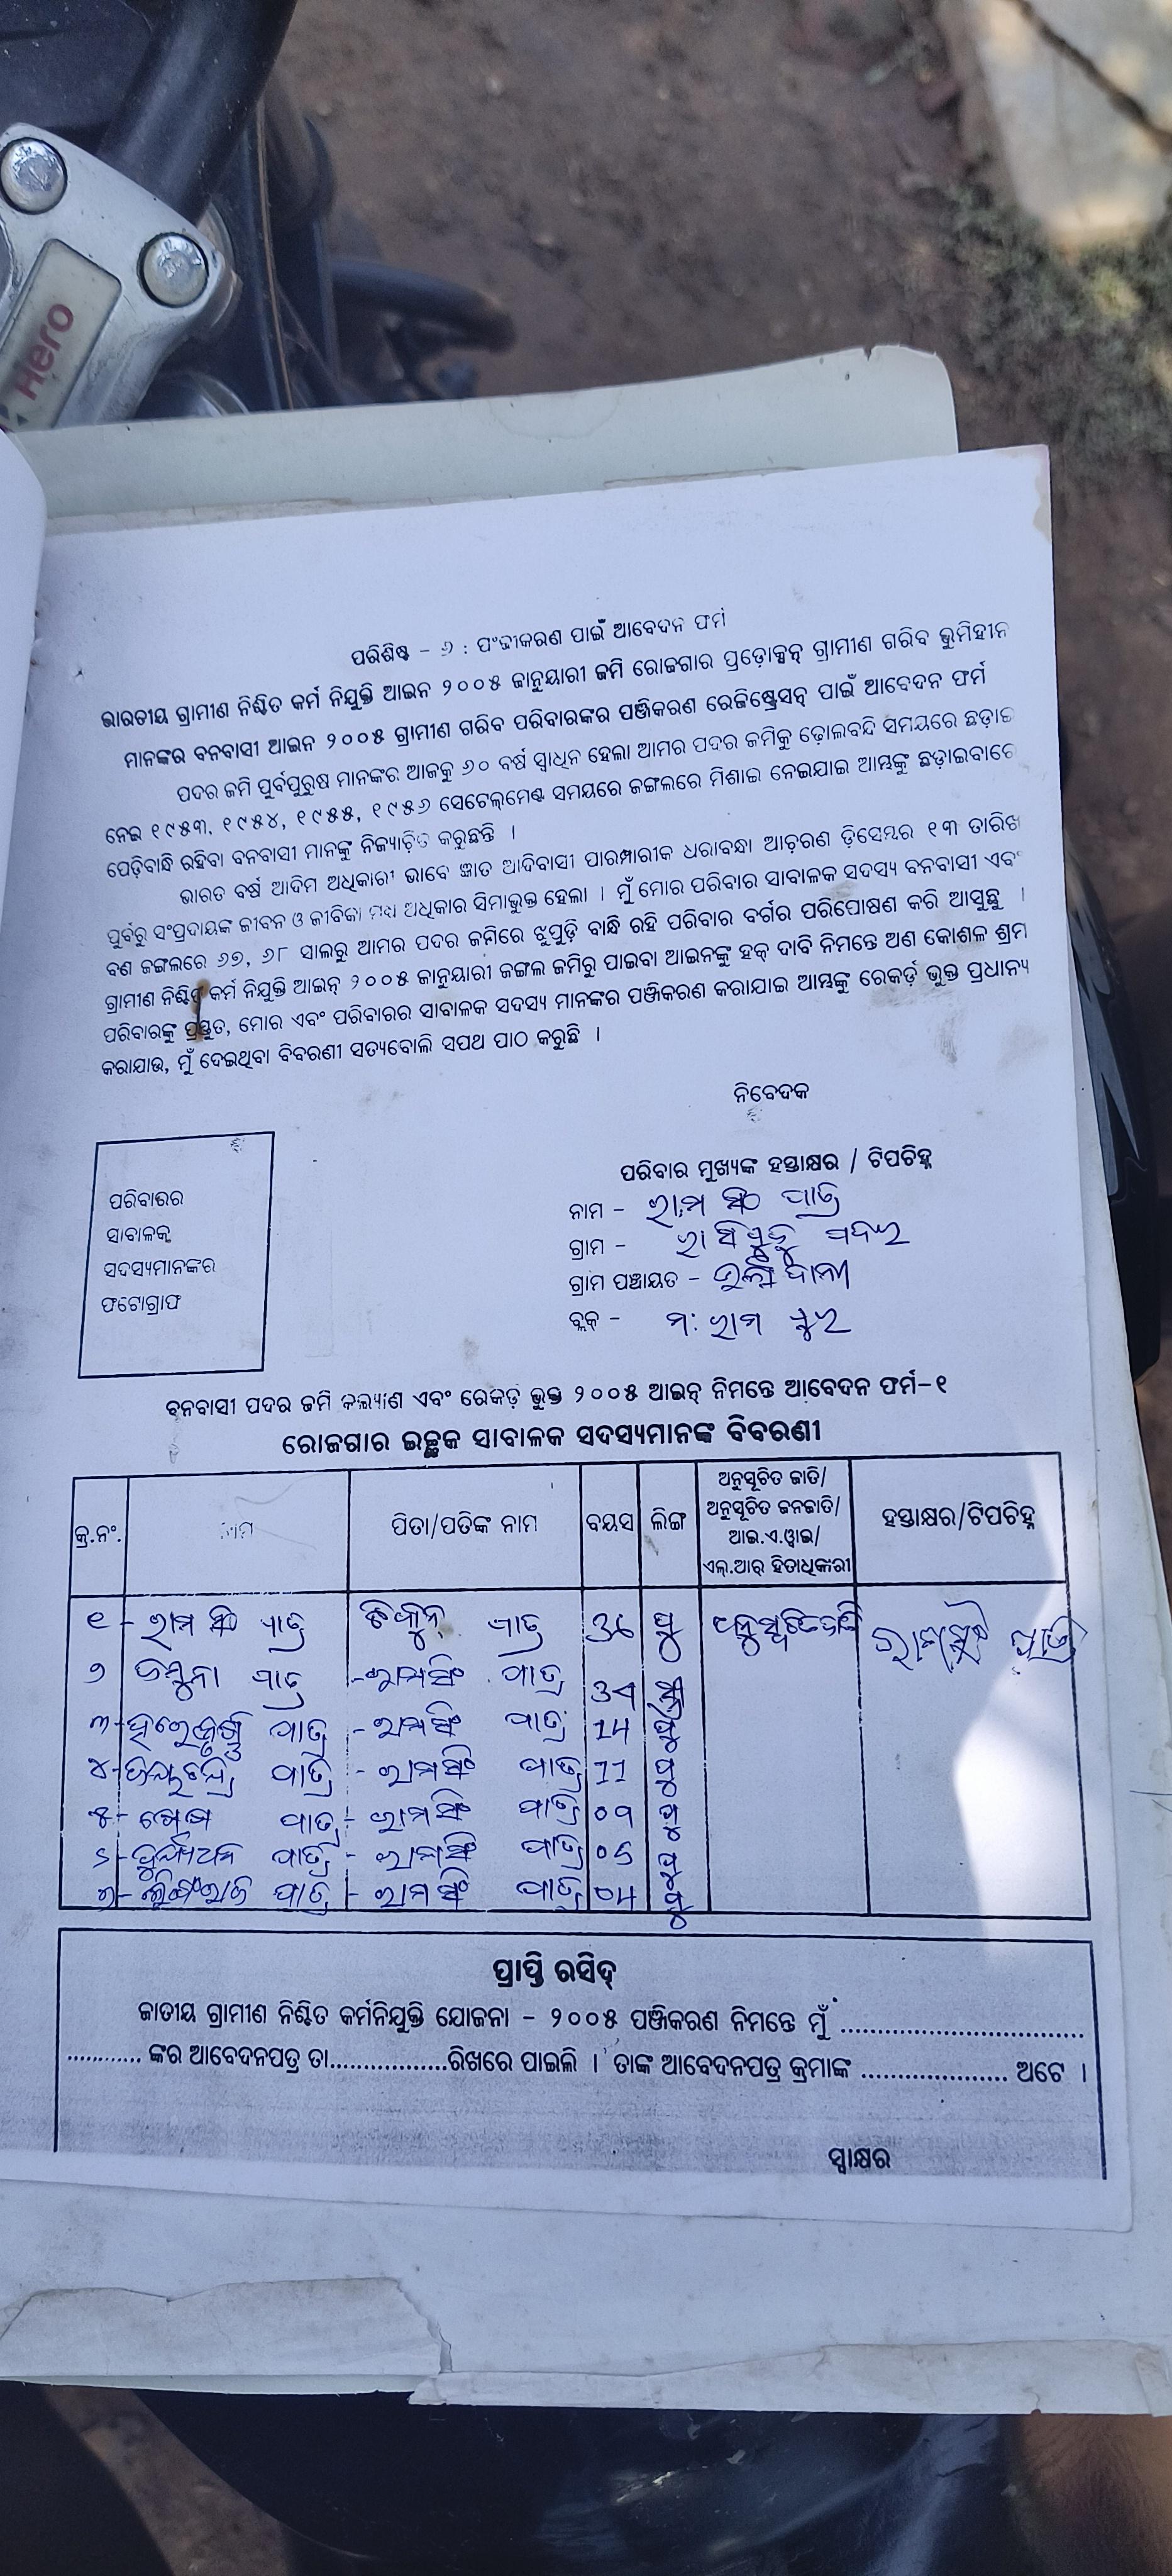 Hero
ପରିଶିଷ୍ଟ - ୬ : ପଂଜୀକରଣ ପାଇଁ ଆବେଦନ ଫର୍ମ
ଭାରତୀୟ ଗ୍ରାମୀଣ ନିଶ୍ଚିତ କର୍ମ ନିଯୁକ୍ତି ଆଇନ ୨୦୦୫ ଜାନୁୟାରୀ ଜମି ରୋଜଗାର ପ୍ରଡ଼ୋକ୍ସନ୍ ଗ୍ରାମୀଣ ଗରିବ ଭୁମିହୀନ
ମାନଙ୍କର ବନବାସୀ ଆଇନ ୨୦୦୫ ଗ୍ରାମୀଣ ଗରିବ ପରିବାରଙ୍କର ପଞ୍ଜିକରଣ ରେଜିଷ୍ଟ୍ରେସନ୍ ପାଇଁ ଆବେଦନ ଫର୍ମ
ପଦର ଜମି ପୁର୍ବପୁରୁଷ ମାନଙ୍କର ଆଜକୁ ୬୦ ବର୍ଷ ସ୍ଵାଧିନ ହେଲା ଆମର ପଦର ଜମିକୁ ଢ଼ୋଲବନ୍ଦି ସମୟରେ ଛଡ଼ାଇ
ନେଇ ୧୯୫୩, ୧୯୫୪, ୧୯୫୫, ୧୯୫୬ ସେଟେଲ୍‌ମେଣ୍ଟ ସମୟରେ ଜଙ୍ଗଲରେ ମିଶାଇ ନେଇଯାଇ ଆମ୍ଭଙ୍କୁ ଛଡ଼ାଇବାରେ
ପେଡ଼ିବାନ୍ଧି ରହିବା ବନବାସୀ ମାନଙ୍କୁ ନିଜ୍ୟାଚ଼ିତ କରୁଛନ୍ତି ।
ଭାରତ ବର୍ଷ ଆଦିମ ଅଧିକାରୀ ଭାବେ ଜ୍ଞାତ ଆଦିବାସୀ ପାରମ୍ପାରୀକ ଧରାବନ୍ଧା ଆଚ଼ରଣ ଡ଼ିସେମ୍ବର ୧୩ ତାରିଖ
ପୁର୍ବରୁ ସଂପ୍ରଦାୟଙ୍କ ଜୀବନ ଓ ଜୀବିକା ମଧ୍ୟ ଅଧିକାର ସିମାଭୁକ୍ତ ହେଲା । ମୁଁ ମୋର ପରିବାର ସାବାଳକ ସଦସ୍ୟ ବନବାସୀ ଏବଂ
ବଣ ଜଙ୍ଗଲରେ ୬୭, ୬୮ ସାଲରୁ ଆମର ପଦର ଜମିରେ ଝୁପୁଡ଼ି ବାନ୍ଧି ରହି ପରିବାର ବର୍ଗର ପରିପୋଷଣ କରି ଆସୁଛୁ ।
ଗ୍ରାମୀଣ ନିଶ୍ଚିତ କର୍ମ ନିଯୁକ୍ତି ଆଇନ୍ ୨୦୦୫ ଜାନୁୟାରୀ ଜଙ୍ଗଲ ଜମିରୁ ପାଇବା ଆଇନଙ୍କୁ ହକ୍ ଦାବି ନିମନ୍ତେ ଅଣ କୋଶଳ ଶ୍ରମ
ପରିବାରଙ୍କୁ ପ୍ରସ୍ତୁତ, ମୋର ଏବଂ ପରିବାରର ସାବାଳକ ସଦସ୍ୟ ମାନଙ୍କର ପଞ୍ଜିକରଣ କରାଯାଇ ଆମ୍ଭଙ୍କୁ ରେକର୍ଡ଼ ଭୁକ୍ତ ପ୍ରଧାନ୍ୟ
କରାଯାଉ, ମୁଁ ଦେଇଥିବା ବିବରଣୀ ସତ୍ୟବୋଲି ସପଥ ପାଠ କରୁଛି ।
ନିବେଦକ
ପରିବାରର
ସାବାଳକ
ସଦସ୍ୟମାନଙ୍କର
ଫଟୋଗ୍ରାଫ
ପରିବାର ମୁଖ୍ୟଙ୍କ ହସ୍ତାକ୍ଷର / ଟିପଚିହ୍ନ
ନାମ - ରାମ ସିଂ ପାତ୍ର
ଗ୍ରାମ - ପଦର
ଗ୍ରାମ ପଞ୍ଚାୟତ -
ବ୍ଲକ୍ - ମ: ରାମ ପୁର
ବନବାସୀ ପଦର ଜମି କଲ୍ୟାଣ ଏବଂ ରେକଡ଼ ଭୁକ୍ତ ୨୦୦୫ ଆଇନ୍ ନିମନ୍ତେ ଆବେଦନ ଫର୍ମ-୧
ରୋଜଗାର ଇଚ୍ଛୁକ ସାବାଳକ ସଦସ୍ୟମାନଙ୍କ ବିବରଣୀ
କ୍ର.ନଂ. ନାମ ପିତା/ପତିଙ୍କ ନାମ ବୟସ ଲିଙ୍ଗ ଅନୁସୂଚିତ ଜାତି/ ଅନୁସୂଚିତ ଜନଜାତି/ ଆଇ.ଏ.ୱାଇ/ ଏଲ୍.ଆର୍ ହିତାଧିକାରୀ ହସ୍ତାକ୍ଷର/ଟିପଚିହ୍ନ
୧ - ରାମ ସିଂ ପାତ୍ର ପାତ୍ର 36 ପୁ ରାମସିଂ ପାତ୍ର
୨ ଯମୁନା ପାତ୍ର - ରାମସିଂ ପାତ୍ର 34 ସ୍ତ୍ରୀ
୩ - ହରେକୃଷ୍ଣ ପାତ୍ର - ରାମସିଂ ପାତ୍ର 14 ପୁ
୪ - ପାତ୍ର - ରାମସିଂ ପାତ୍ର 11 ପୁ
୫ - ପାତ୍ର - ରାମସିଂ ପାତ୍ର 09 ପୁ
୬ - ପାତ୍ର - ରାମସିଂ ପାତ୍ର 05 ପୁ
୭ - ପାତ୍ର - ରାମସିଂ ପାତ୍ର 04 ପୁ
ପ୍ରାପ୍ତି ରସିଦ୍
ଜାତୀୟ ଗ୍ରାମୀଣ ନିଶ୍ଚିତ କର୍ମନିଯୁକ୍ତି ଯୋଜନା - ୨୦୦୫ ପଞ୍ଜିକରଣ ନିମନ୍ତେ ମୁଁ .................................
............ ଙ୍କର ଆବେଦନପତ୍ର ତା.................ରିଖରେ ପାଇଲି । ତାଙ୍କ ଆବେଦନପତ୍ର କ୍ରମାଙ୍କ .................... ଅଟେ ।
ସ୍ୱାକ୍ଷର